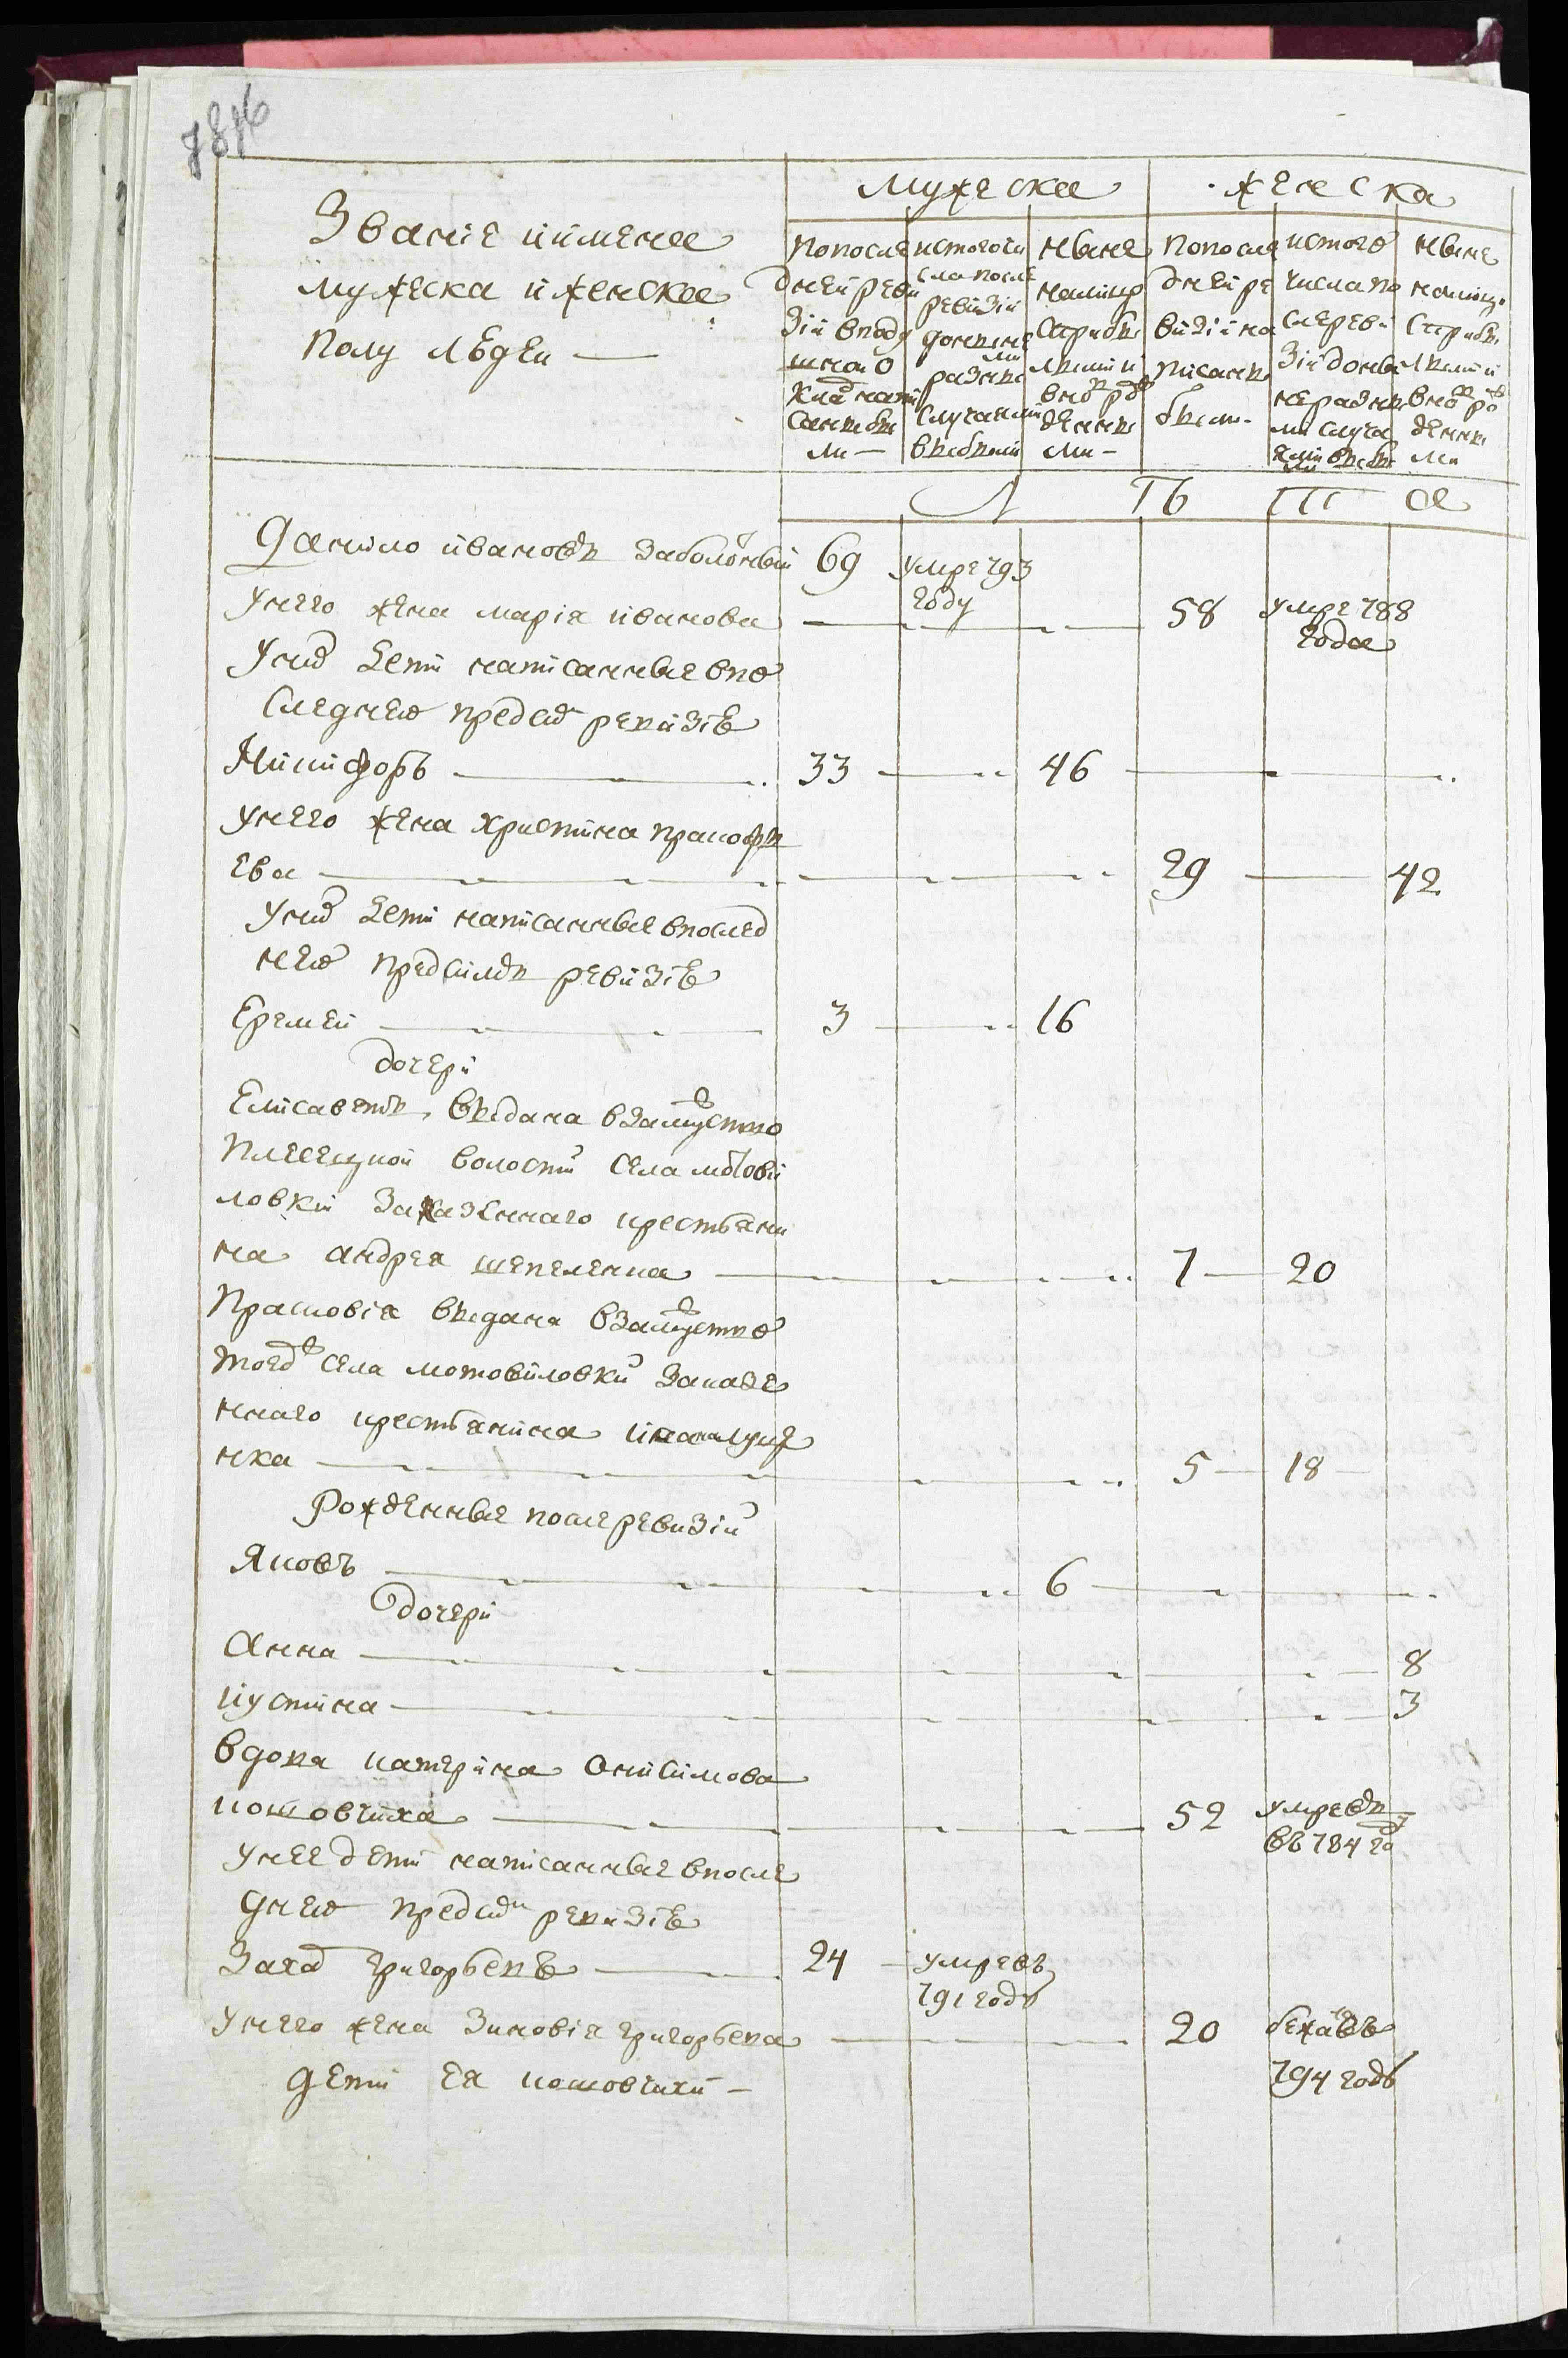 7816
Мужеска женска
Званіе ийменa
мужеска ижéнска
полу людей —
попосле
дней реви
зіи вподу
шной о
кладъ напи
саны бы
ли —
истогочи
сла после
ревизіи
доныне
разны
ми
случаями
выбыли
ныне
налицо
спрыбы
лыми и
вновъ рож
денны
ми —
попосле
дней ре
визіи на
писаны
были
истого
числа по
сле реви
зіи доны
не разны
ми случа
ями выбы
ли
ныне
налицо
спрыбы
лыми и
вновъ ро
денны
ми
Л Ѣ Т А
Данило ивановъ заболотный 69 умре 793
году
унего жена марія иванова 58 умре 788
года
уних дети написанные впо
следнею пред сим ревизіе
Никифоръ 33 46
унего жена христина прокофь
ева 29 42
уних дети написанные впослед
нею предсимъ ревизіе
Еремей 3 16
дочери
Елисаветъ, выдана взамужство
Плесецкой волости села мотови
ловки заказеннаго крестьяни
на андрея шепеленка 7 20
Прасковія выдана взамужство
тоеж села мотовиловки заказе
ннаго крестьянина
нка 5 18
Рожденные после ревизіи
Яковъ 6
дочери
Анна 8
иустина 3
вдова катерина Онисимова
котовчиха 52 умре въ
въ 784 го
унее дети написанные впосле
днею пред сим ревизіе
Захар григорьевъ 24 умре въ
791 годѣ
унего жена Зиновія григорьева 20 бежа въ
794 годѣ
дети ея котовчихи —